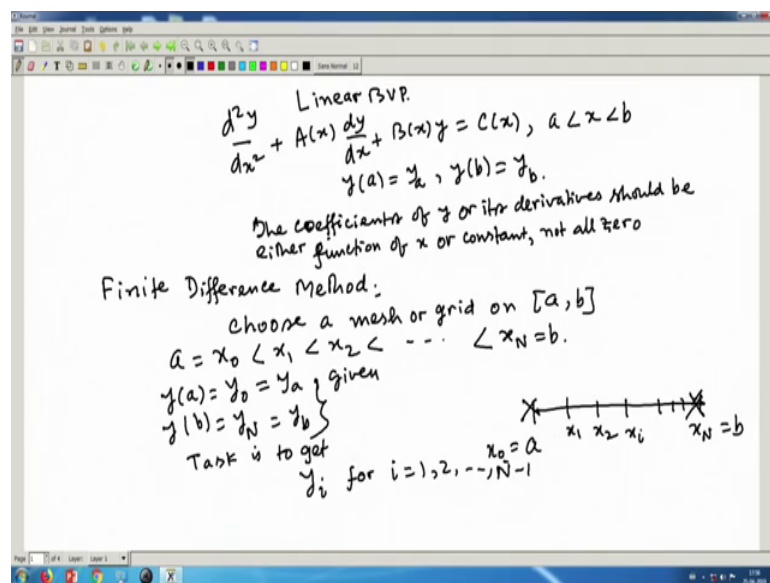 Journal
File Edit View Journal Tools Options Help
Sans Normal 12
Linear BVP.
d²y/dx² + A(x) dy/dx + B(x)y = C(x), a < x < b
y(a) = y_a, y(b) = y_b.
The coefficients of y or its derivatives should be
either function of x or constant, not all zero
Finite Difference Method:
choose a mesh or grid on [a, b]
a = x_0 < x_1 < x_2 < ---- < x_N = b.
y(a) = y_0 = y_a } given
y(b) = y_N = y_b }
x_0 = a x_1 x_2 x_i x_N = b
Task is to get
y_i for i = 1, 2, ---, N-1
Page 1 of 4 Layer: Layer 1